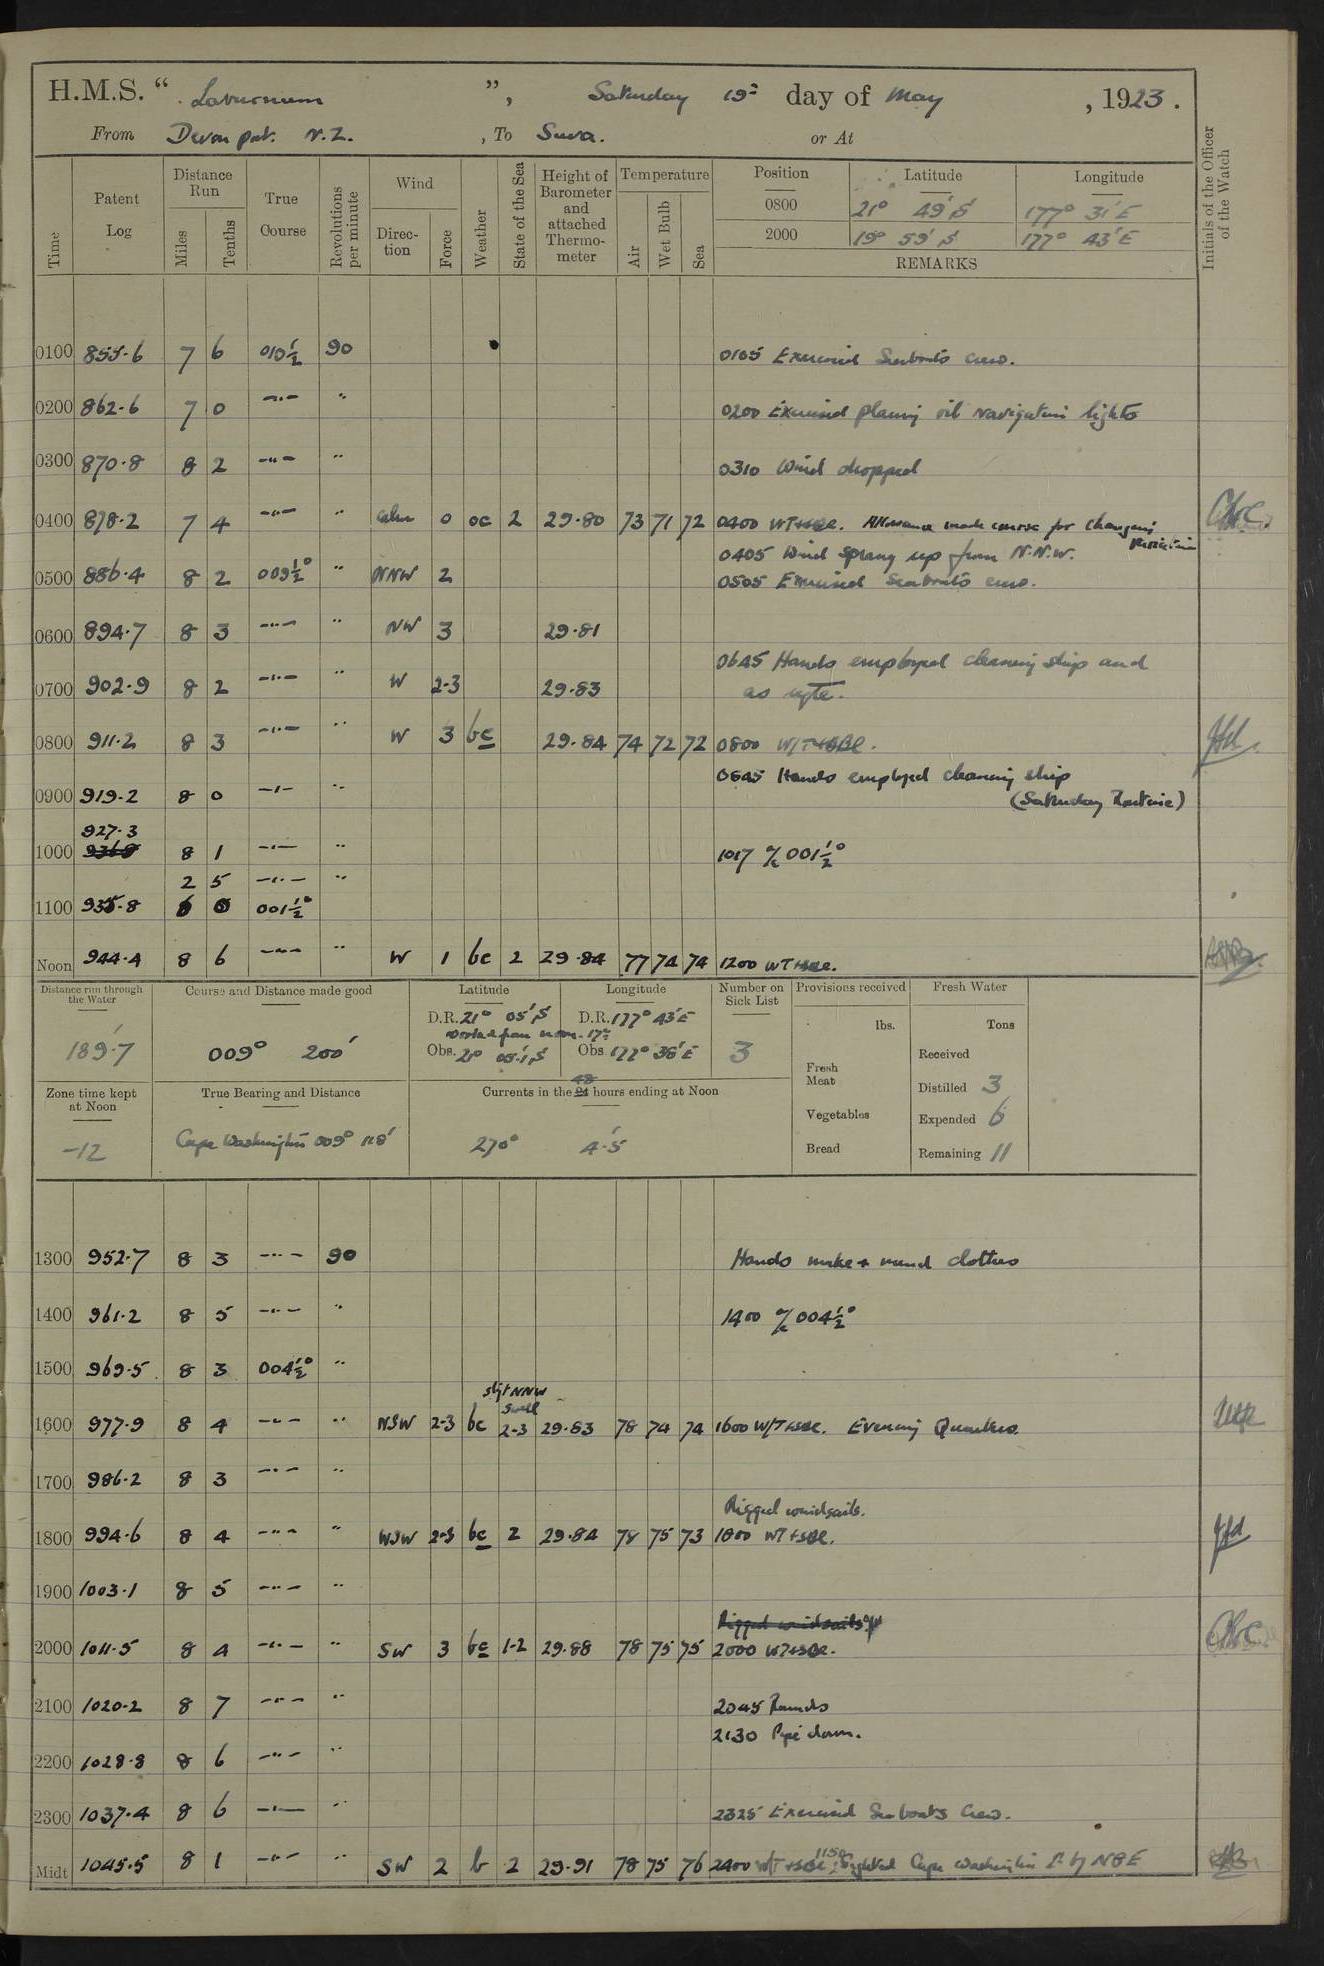 H.M.S. " Laburnum ", Saturday 19th day of May, 1923.
From Devonport. N.Z., To Suva. or At
Time Patent Log Distance Run Miles Tenths True Course Revolutions per minute Wind Direction Force Weather State of the Sea Height of Barometer and attached Thermometer Temperature Air Wet Bulb Sea Position Latitude Longitude Initials of the Officer of the Watch
0800 21° 49' S 177° 31' E
2000 19° 59' S 177° 43' E
REMARKS
0100 855.6 7 6 010½ 90 0105 Exercised Seaboats crew.
0200 862.6 7 0 —"— " 0200 Exercised placing oil navigation lights
0300 870.8 8 2 —"— " 0310 Wind dropped
0400 878.2 7 4 —"— " calm 0 oc 2 29.80 73 71 72 0400 WT+SBE. Allowance made course for changing
0405 Wind sprang up from N.N.W.
0500 886.4 8 2 009½° " NNW 2 0505 Exercised Seaboats crew.
0600 894.7 8 3 —"— " NW 3 29.81
0645 Hands employed cleaning ship and
0700 902.9 8 2 —"— " W 2-3 29.83 as reqte.
0800 911.2 8 3 —"— " W 3 bc 29.84 74 72 72 0800 W/T+SBE.
0645 Hands employed cleaning ship
0900 919.2 8 0 —"— " (Saturday Routine)
927.3
1000 8 1 —"— " 1017 a/c 001½°
2 5 —"— "
1100 935.8 6 0 001½°
Noon 944.4 8 6 —"— " W 1 bc 2 29.84 77 74 74 1200 WT+SBE.
Distance run through the Water Course and Distance made good Latitude Longitude Number on Sick List Provisions received Fresh Water
D.R. 21° 05' S D.R. 177° 43' E lbs. Tons
Worked from noon. 17th
189'.7 009° 200' Obs. 21° 05'.1 S Obs 177° 36' E 3 Received
Fresh Meat
Zone time kept at Noon True Bearing and Distance Currents in the 48 hours ending at Noon Distilled 3
Vegetables Expended 6
-12 Cape Washington 009° 118' 270° 4'.5 Bread Remaining 11
1300 952.7 8 3 —"— 90 Hands make + mend clothes
1400 961.2 8 5 —"— " 1400 a/c 004½°
1500 969.5 8 3 004½° "
slgt NNW
swell
1600 977.9 8 4 —"— " WSW 2-3 bc 2-3 29.83 78 74 74 1600 W/T+SBE. Evening Quarters.
1700 986.2 8 3 —"— "
Rigged windsails.
1800 994.6 8 4 —"— " WSW 2-3 bc 2 29.84 78 75 73 1800 WT+SBE.
1900 1003.1 8 5 —"— "
Rigged windsails
2000 1011.5 8 4 —"— " SW 3 bc 1-2 29.88 78 75 75 2000 WT+SBE.
2100 1020.2 8 7 —"— " 2045 Rounds
2130 Pipe down.
2200 1028.8 8 6 —"— "
2300 1037.4 8 6 —"— " 2325 Exercised Seaboats Crew.
Midt 1045.5 8 1 —"— " SW 2 b 2 29.91 78 75 76 2400 W/T+SBE 1150 Sighted Cape Washington Lt by N8E